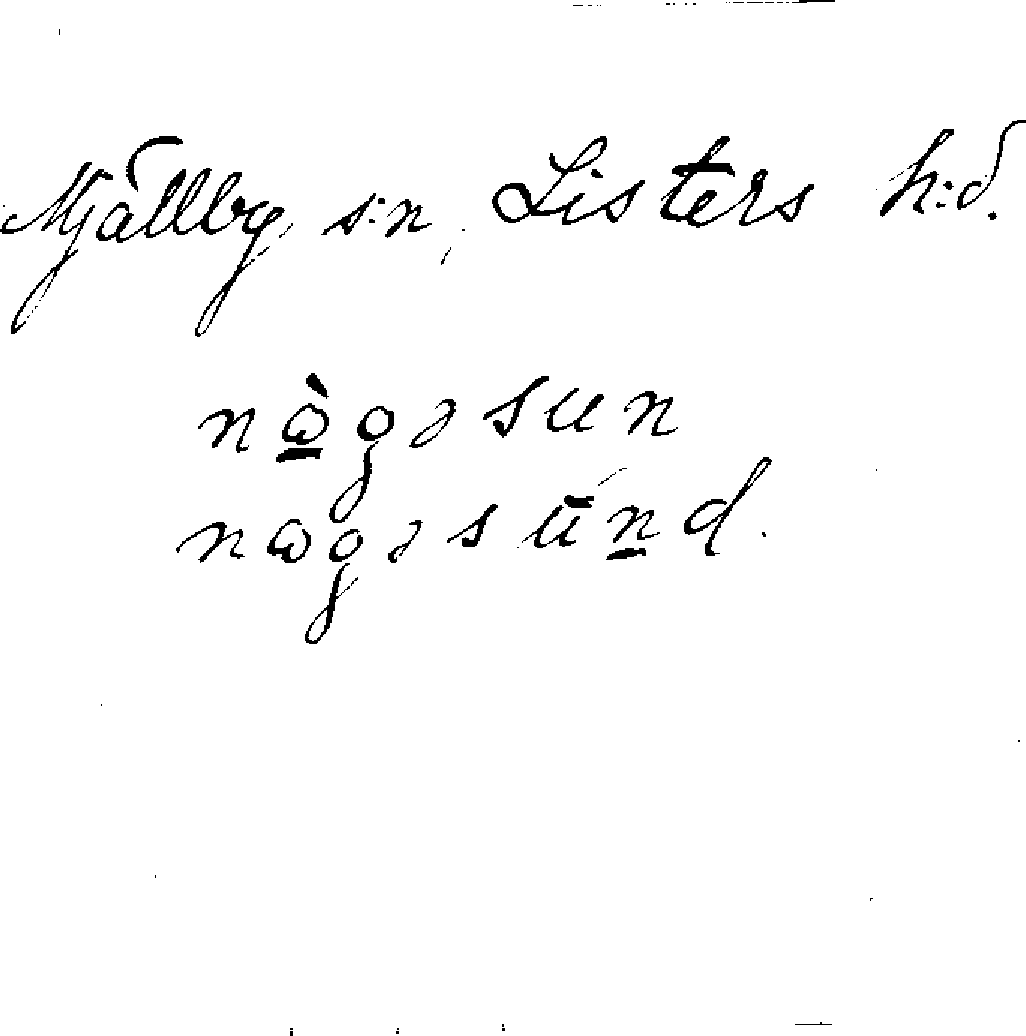 Mjällby s:n, Listers h:d.
nὼ̲gəsun
nωgəsūn̲d.